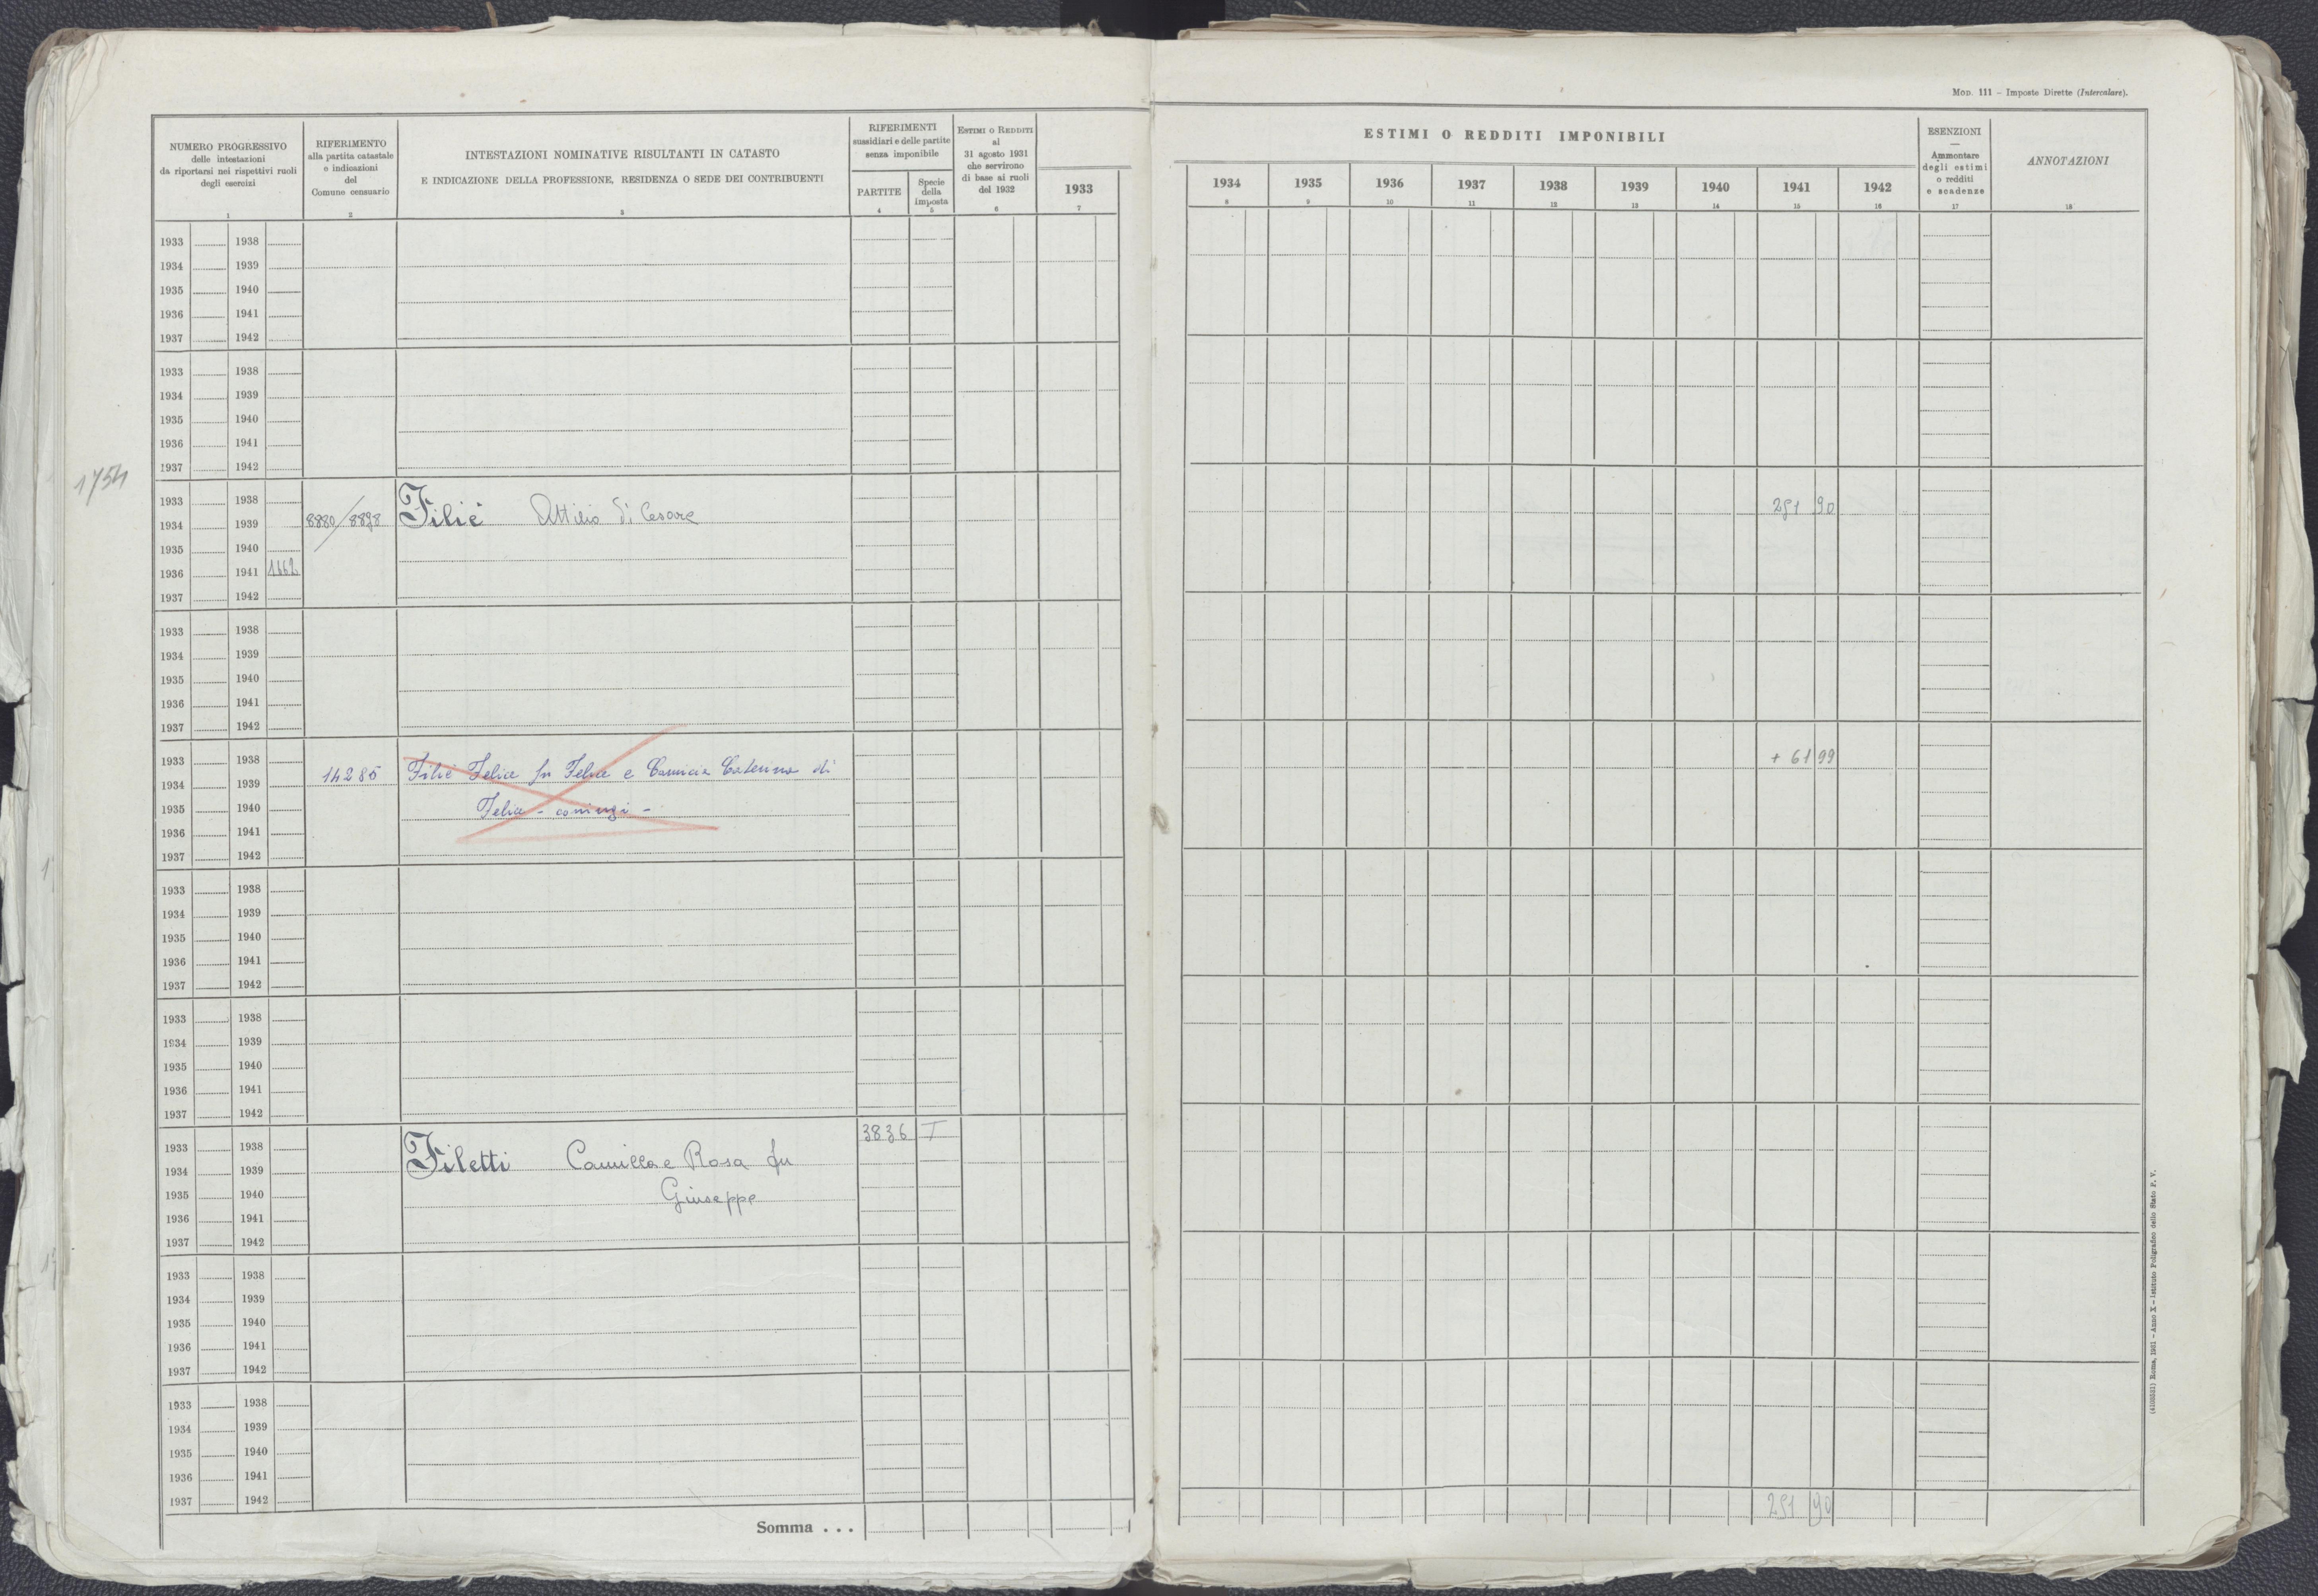 Mod. 111 – Imposte Dirette (Intercalare).
NUMERO PROGRESSIVO
delle intestazioni
da riportarsi nei rispettivi ruoli
degli esercizi
1
RIFERIMENTO
alla partita catastale
e indicazioni
del
Comune censuario
2
INTESTAZIONI NOMINATIVE RISULTANTI IN CATASTO
E INDICAZIONE DELLA PROFESSIONE, RESIDENZA O SEDE DEI CONTRIBUENTI
3
RIFERIMENTI
sussidiari e delle partite
senza imponibile
PARTITE
4
Specie
della
imposta
5
Estimi o Redditi
al
31 agosto 1931
che servirono
di base ai ruoli
del 1932
6
1933
7
ESTIMI O REDDITI IMPONIBILI
1934 1935 1936 1937 1938 1939 1940 1941 1942
8 9 10 11 12 13 14 15 16
ESENZIONI
—
Ammontare
degli estimi
o redditi
e scadenze
17
ANNOTAZIONI
18
1933 1938
1934 1939
1935 1940
1936 1941
1937 1942
1933 1938
1934 1939
1935 1940
1936 1941
1937 1942
1933 1938
1934 1939 Filié Attilio di Cesare
1935 1940
1936 1941 1662
1937 1942
1933 1938
1934 1939
1935 1940
1936 1941
1937 1942
1933 1938 + 61 99
1934 1939 14285 Filié Felice fu Felice e Camicia Caterina di
1935 1940 Felice - coniugi -
1936 1941
1937 1942
1933 1938
1934 1939
1935 1940
1936 1941
1937 1942
1933 1938
1934 1939
1935 1940
1936 1941
1937 1942
1933 1938 3836 T
1934 1939 Filetti Camilla e Rosa fu
1935 1940 Giuseppe
1936 1941
1937 1942
1933 1938
1934 1939
1935 1940
1936 1941
1937 1942
1933 1938
1934 1939
1935 1940
1936 1941
1937 1942
Somma . . .
Roma, 1931 – Anno X – Istituto Poligrafico dello Stato P. V.